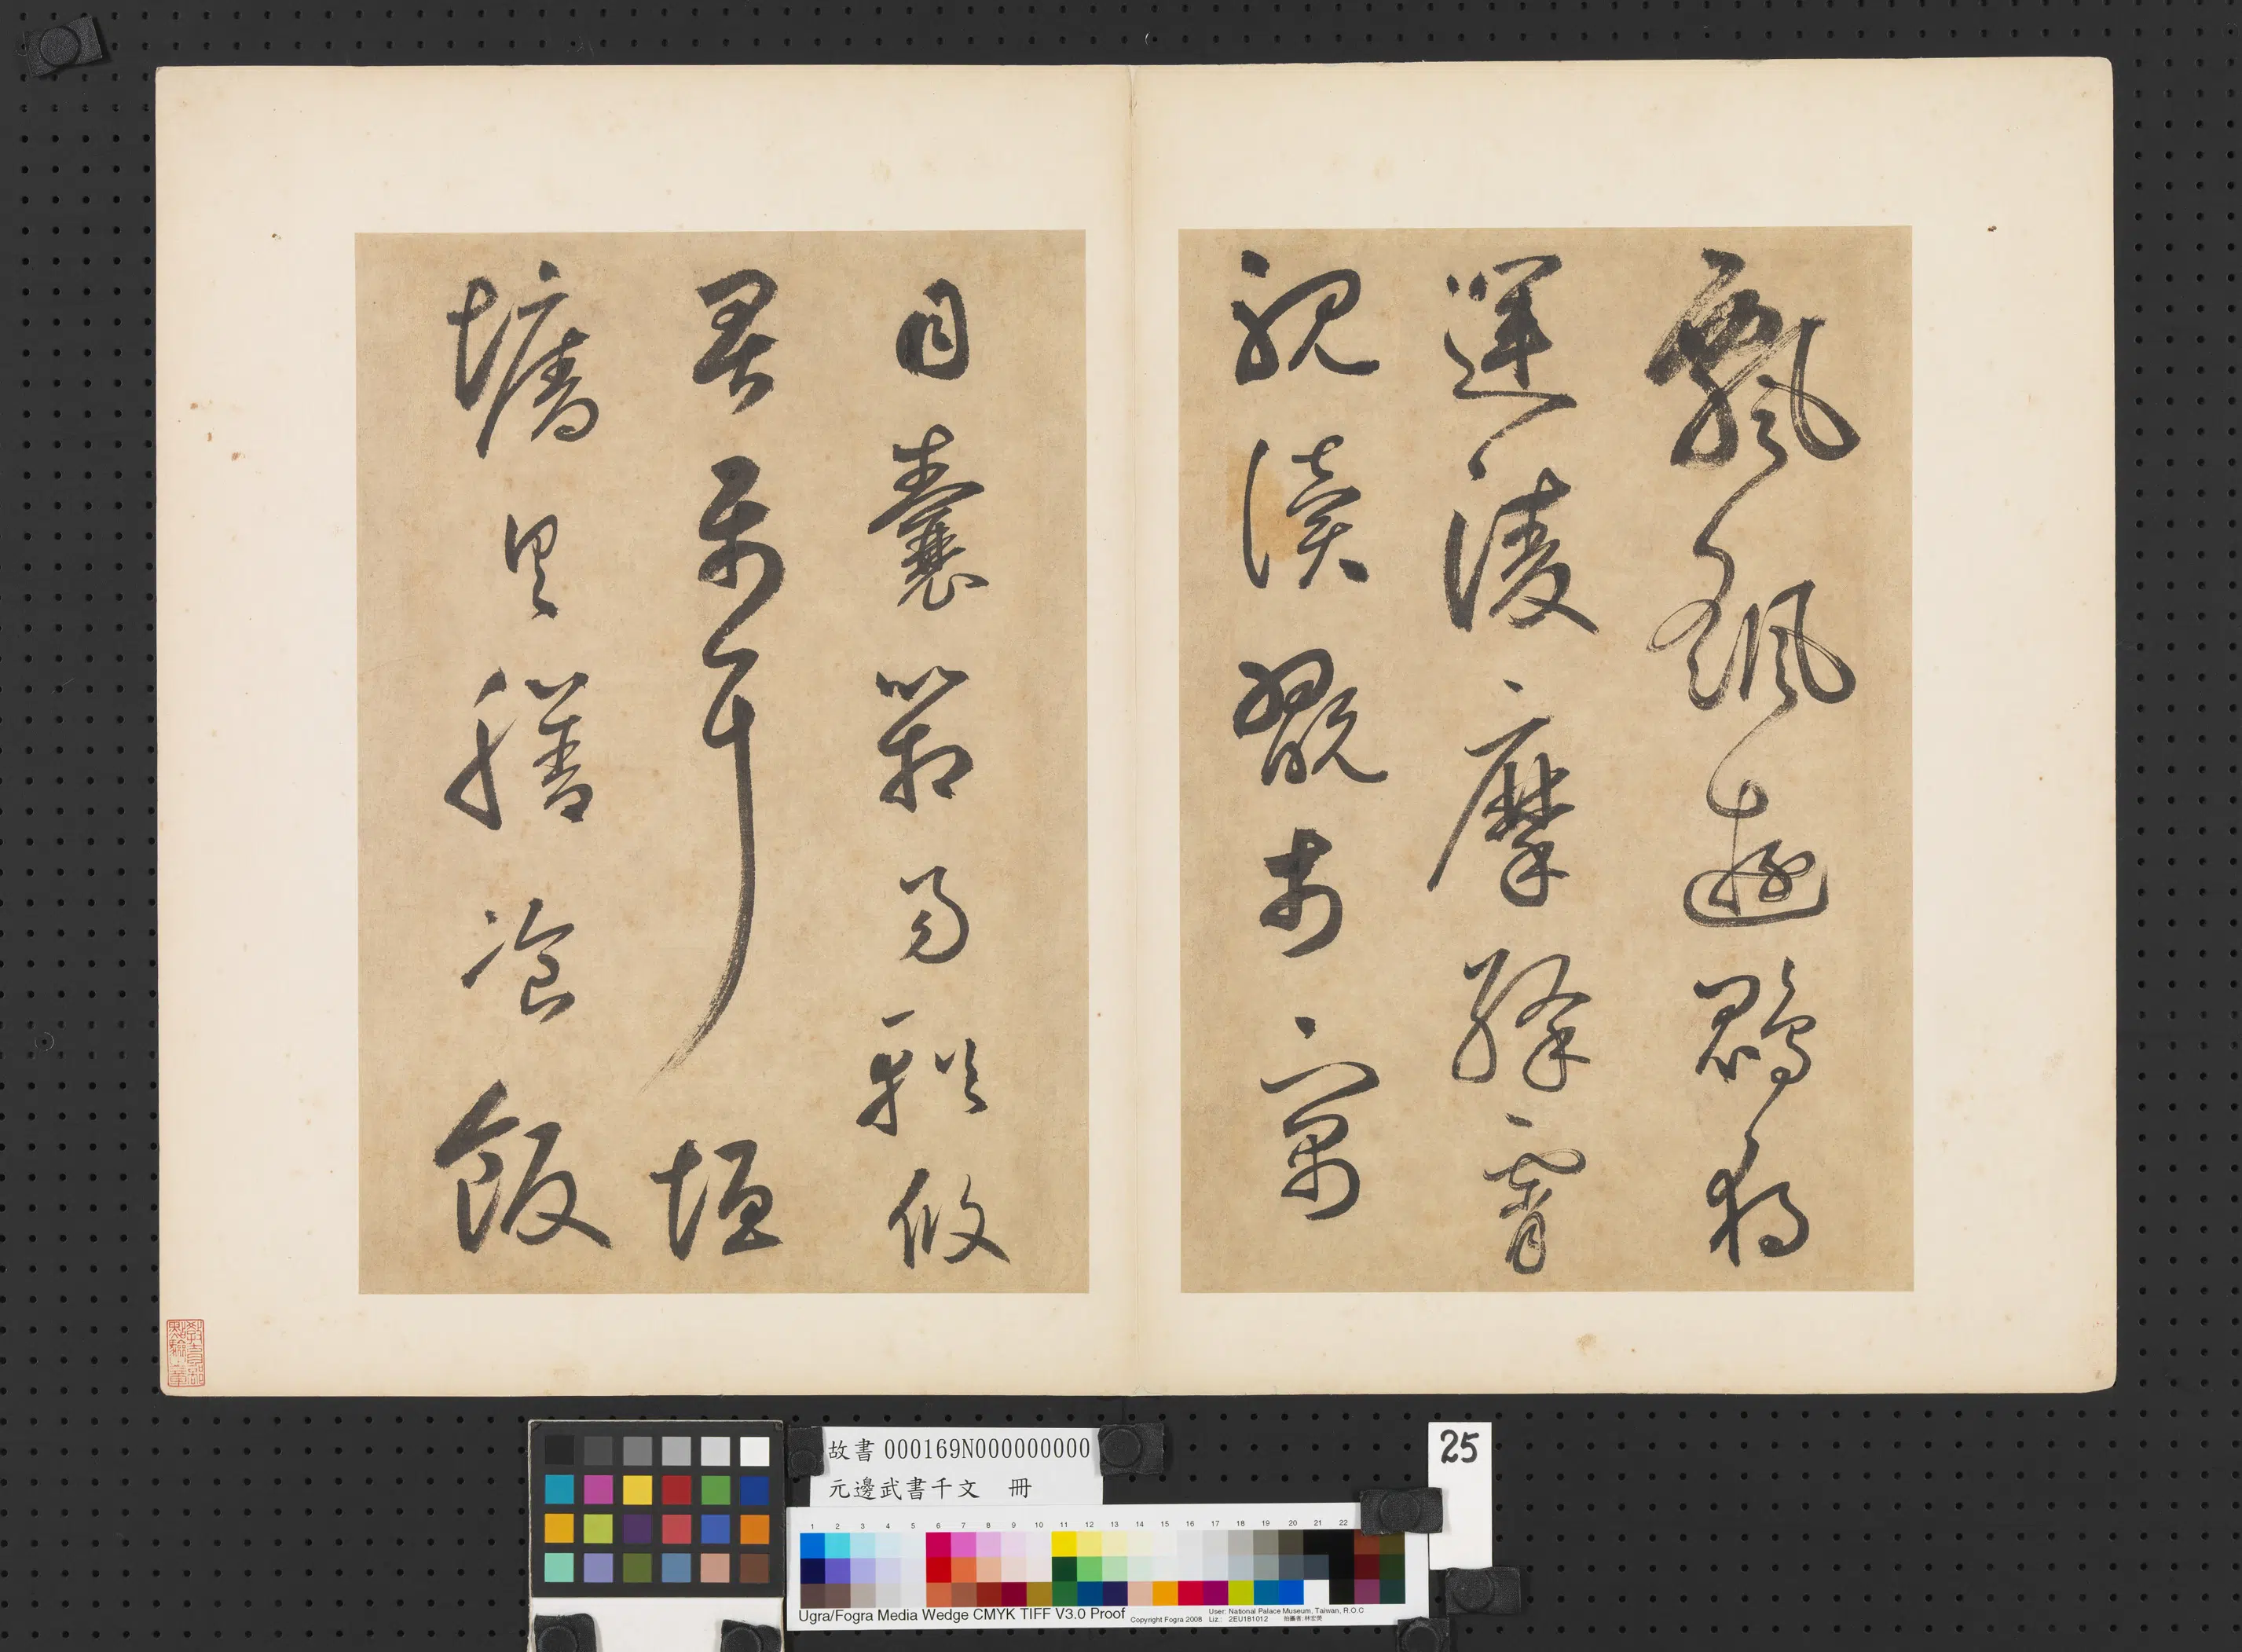 飄颻遊鵾獨
運淩摩絳霄
耽讀翫市寓
目囊箱易輶攸
畏屬耳垣
墻具膳飡飯
教育部點驗之章
故書 000169N000000000
元邊武書千文 冊
25
1 2 3 4 5 6 7 8 9 10 11 12 13 14 15 16 17 18 19 20 21 22
Ugra/Fogra Media Wedge CMYK TIFF V3.0 Proof
Copyright Fogra 2008
User: National Palace Museum, Taiwan, R.O.C
Liz.: 2EU181012